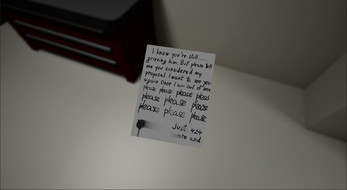 I know you're still
grieving him. But please tell
me you considered my
proposal I want to see you
again
please please please pleas
please please please
please please please
Just 424
and